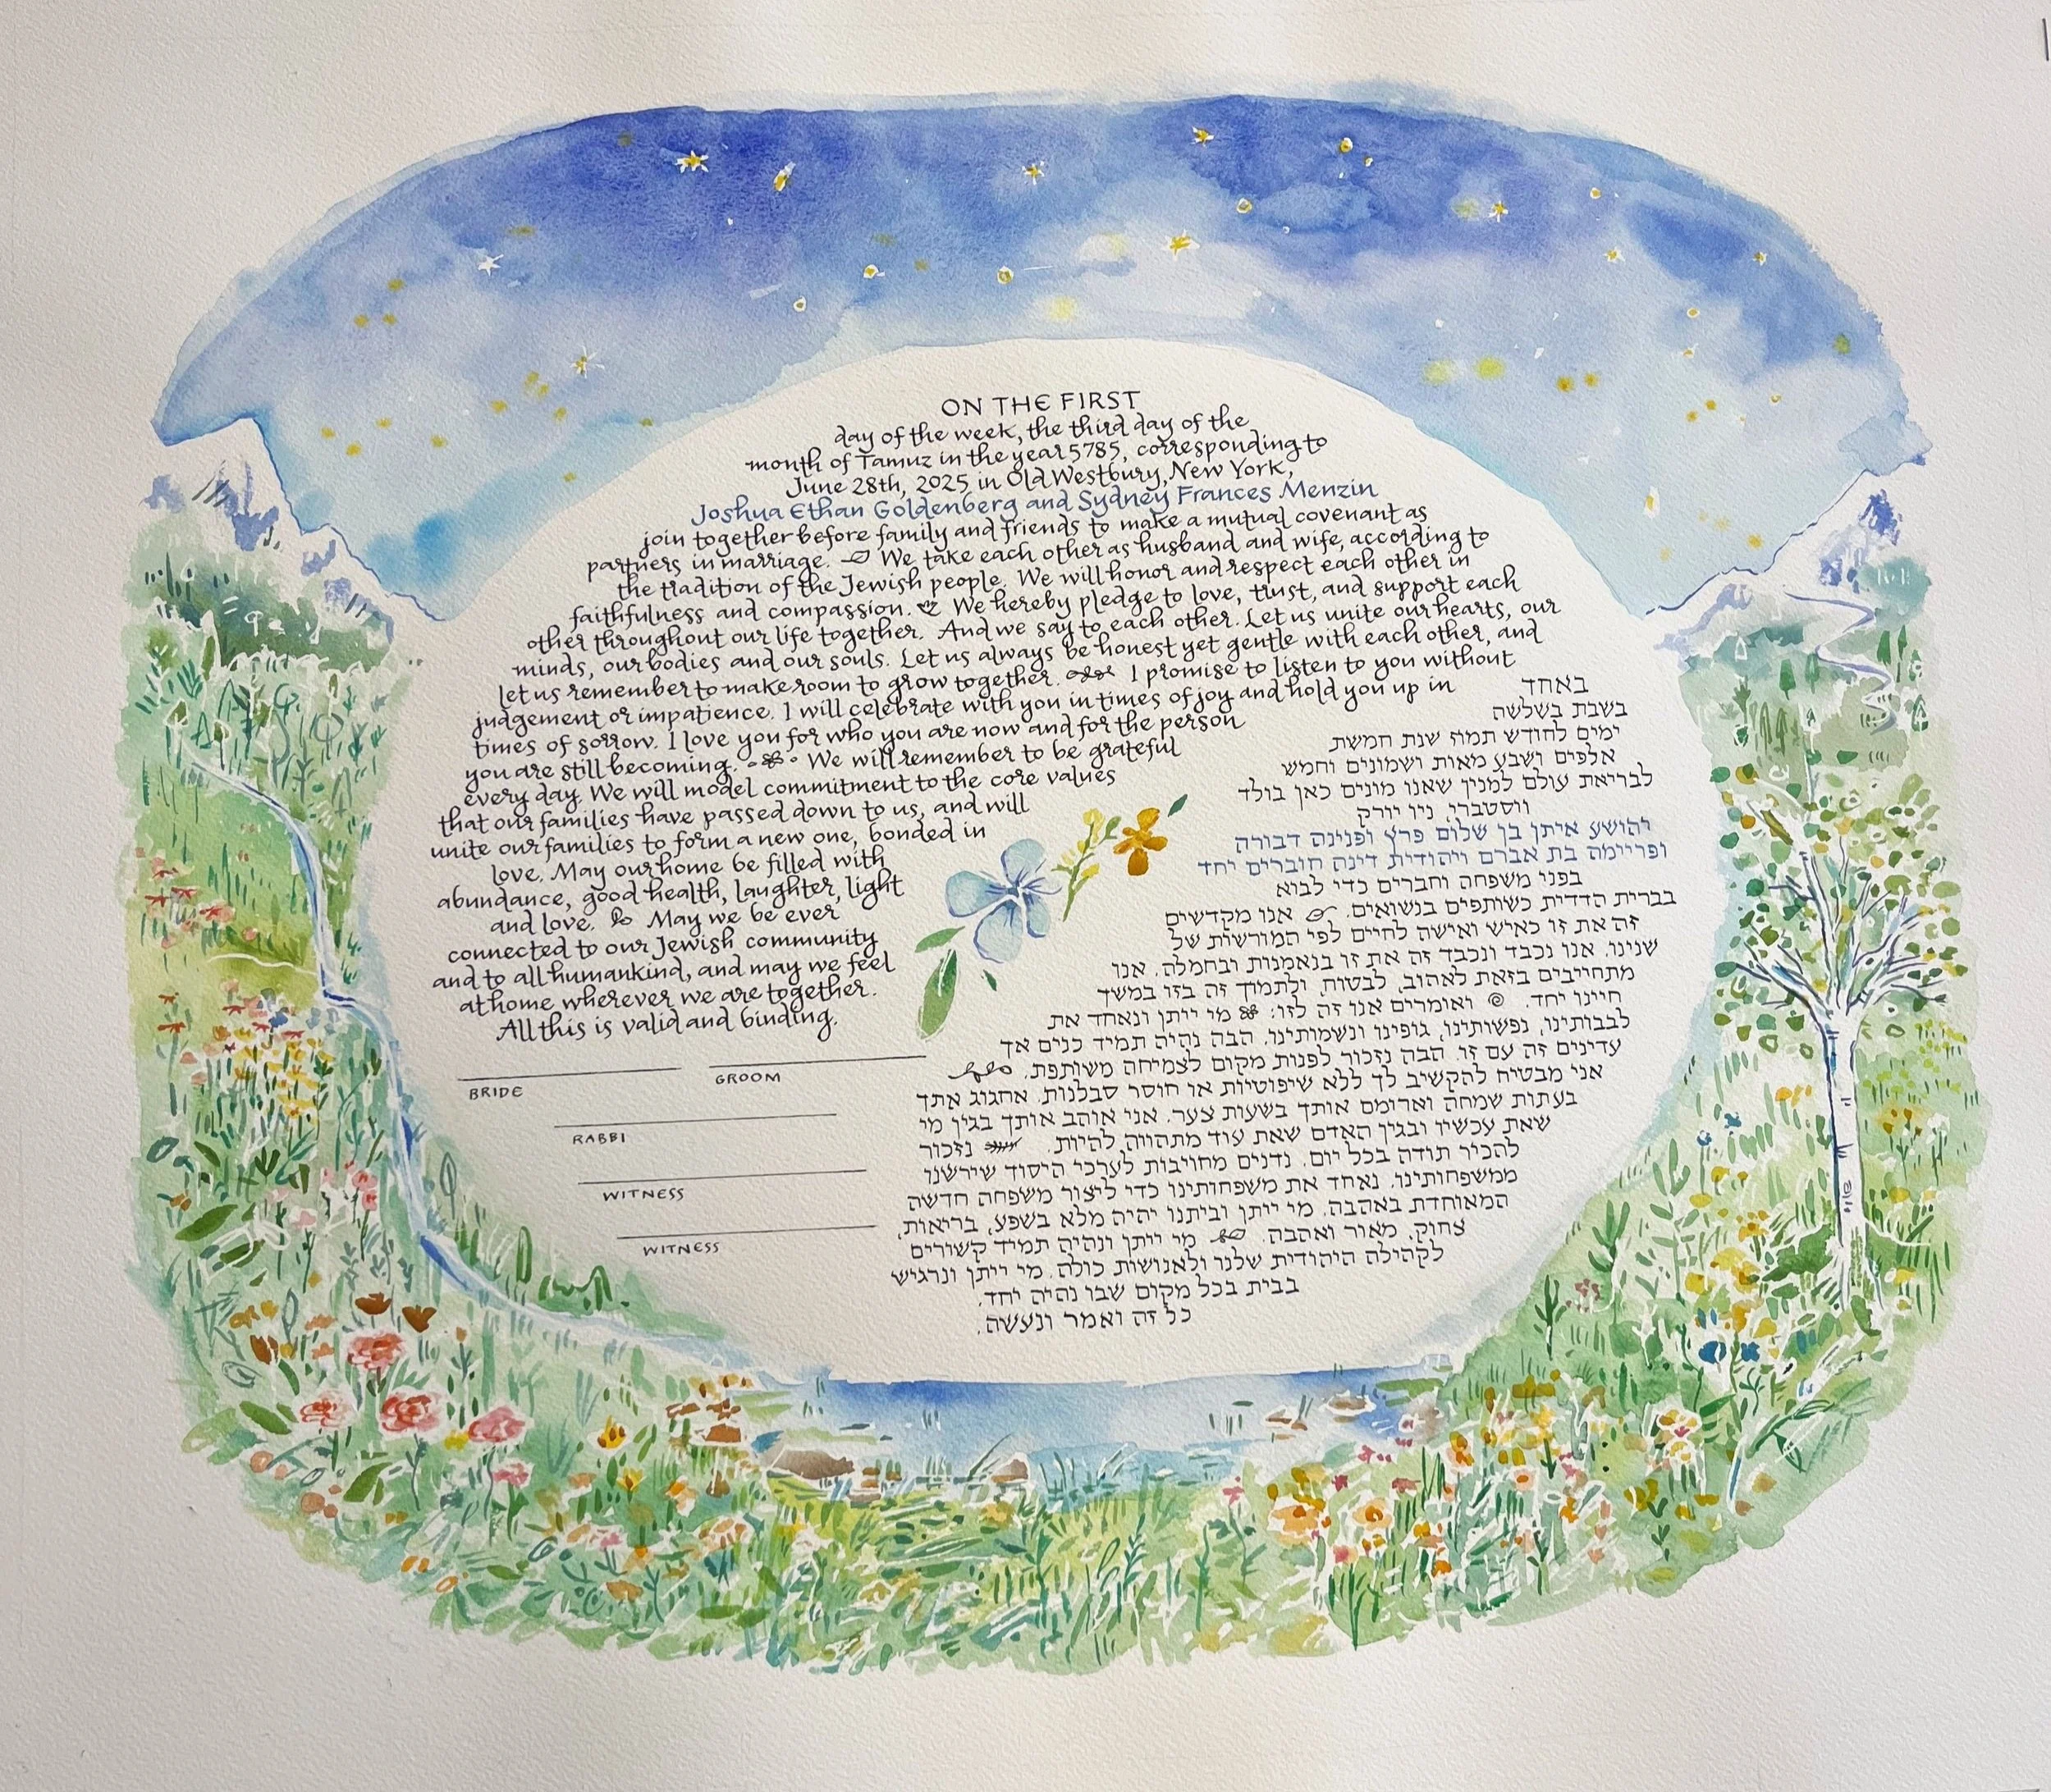 ON THE FIRST
day of the week, the third day of the
month of Tamuz in the year 5785, corresponding to
June 28th, 2025 in Old Westbury, New York,
Joshua Ethan Goldenberg and Sydney Frances Menzin
join together before family and friends to make a mutual covenant as
partners in marriage. We take each other as husband and wife, according to
the tradition of the Jewish people. We will honor and respect each other in
faithfulness and compassion. We hereby pledge to love, trust, and support each
other throughout our life together. And we say to each other. Let us unite our hearts, our
minds, our bodies and our souls. Let us always be honest yet gentle with each other, and
let us remember to make room to grow together. I promise to listen to you without
judgement or impatience. I will celebrate with you in times of joy and hold you up in
times of sorrow. I love you for who you are now and for the person
you are still becoming. We will remember to be grateful
every day. We will model commitment to the core values
that our families have passed down to us, and will
unite our families to form a new one, bonded in
love. May our home be filled with
abundance, good health, laughter, light
and love. May we be ever
connected to our Jewish community
and to all humankind, and may we feel
at home wherever we are together.
All this is valid and binding.
באחד
בשבת בשלשה
ימים לחודש תמוז שנת חמשת
אלפים ושבע מאות ושמונים וחמש
לבריאת עולם למנין שאנו מונים כאן בולד
ווסטברי, ניו יורק
יהושע איתן בן שלום פרץ ופנינה דבורה
ופריימה בת אברם ויהודית דינה חוברים יחד
בפני משפחה וחברים כדי לבוא
בברית הדדית כשותפים בנשואים. אנו מקדשים
זה את זו כאיש ואישה לחיים לפי המורשות של
שנינו. אנו נכבד ונכבד זה את זו בנאמנות ובחמלה. אנו
מתחייבים בזאת לאהוב, לבטוח, ולתמוך זה בזו במשך
חיינו יחד. ואומרים אנו זה לזו: מי ייתן ונאחד את
לבבותינו, נפשותינו, גופינו ונשמותינו. הבה נהיה תמיד כנים אך
עדינים זה עם זו. הבה נזכור לפנות מקום לצמיחה משותפת.
אני מבטיח להקשיב לך ללא שיפוטיות או חוסר סבלנות. אחגוג אתך
בעתות שמחה וארומם אותך בשעות צער. אני אוהב אותך בגין מי
שאת עכשיו ובגין האדם שאת עוד מתהווה להיות. נזכור
להכיר תודה בכל יום. נדגים מחויבות לערכי היסוד שירשנו
ממשפחותינו. נאחד את משפחותינו כדי ליצור משפחה חדשה
המאוחדת באהבה. מי ייתן וביתנו יהיה מלא בשפע, בריאות,
צחוק, מאור ואהבה. מי ייתן ונהיה תמיד קשורים
לקהילה היהודית שלנו ולאנושות כולה. מי ייתן ונרגיש
בבית בכל מקום שבו נהיה יחד.
כל זה ואמר ונעשה.
BRIDE
GROOM
RABBI
WITNESS
WITNESS